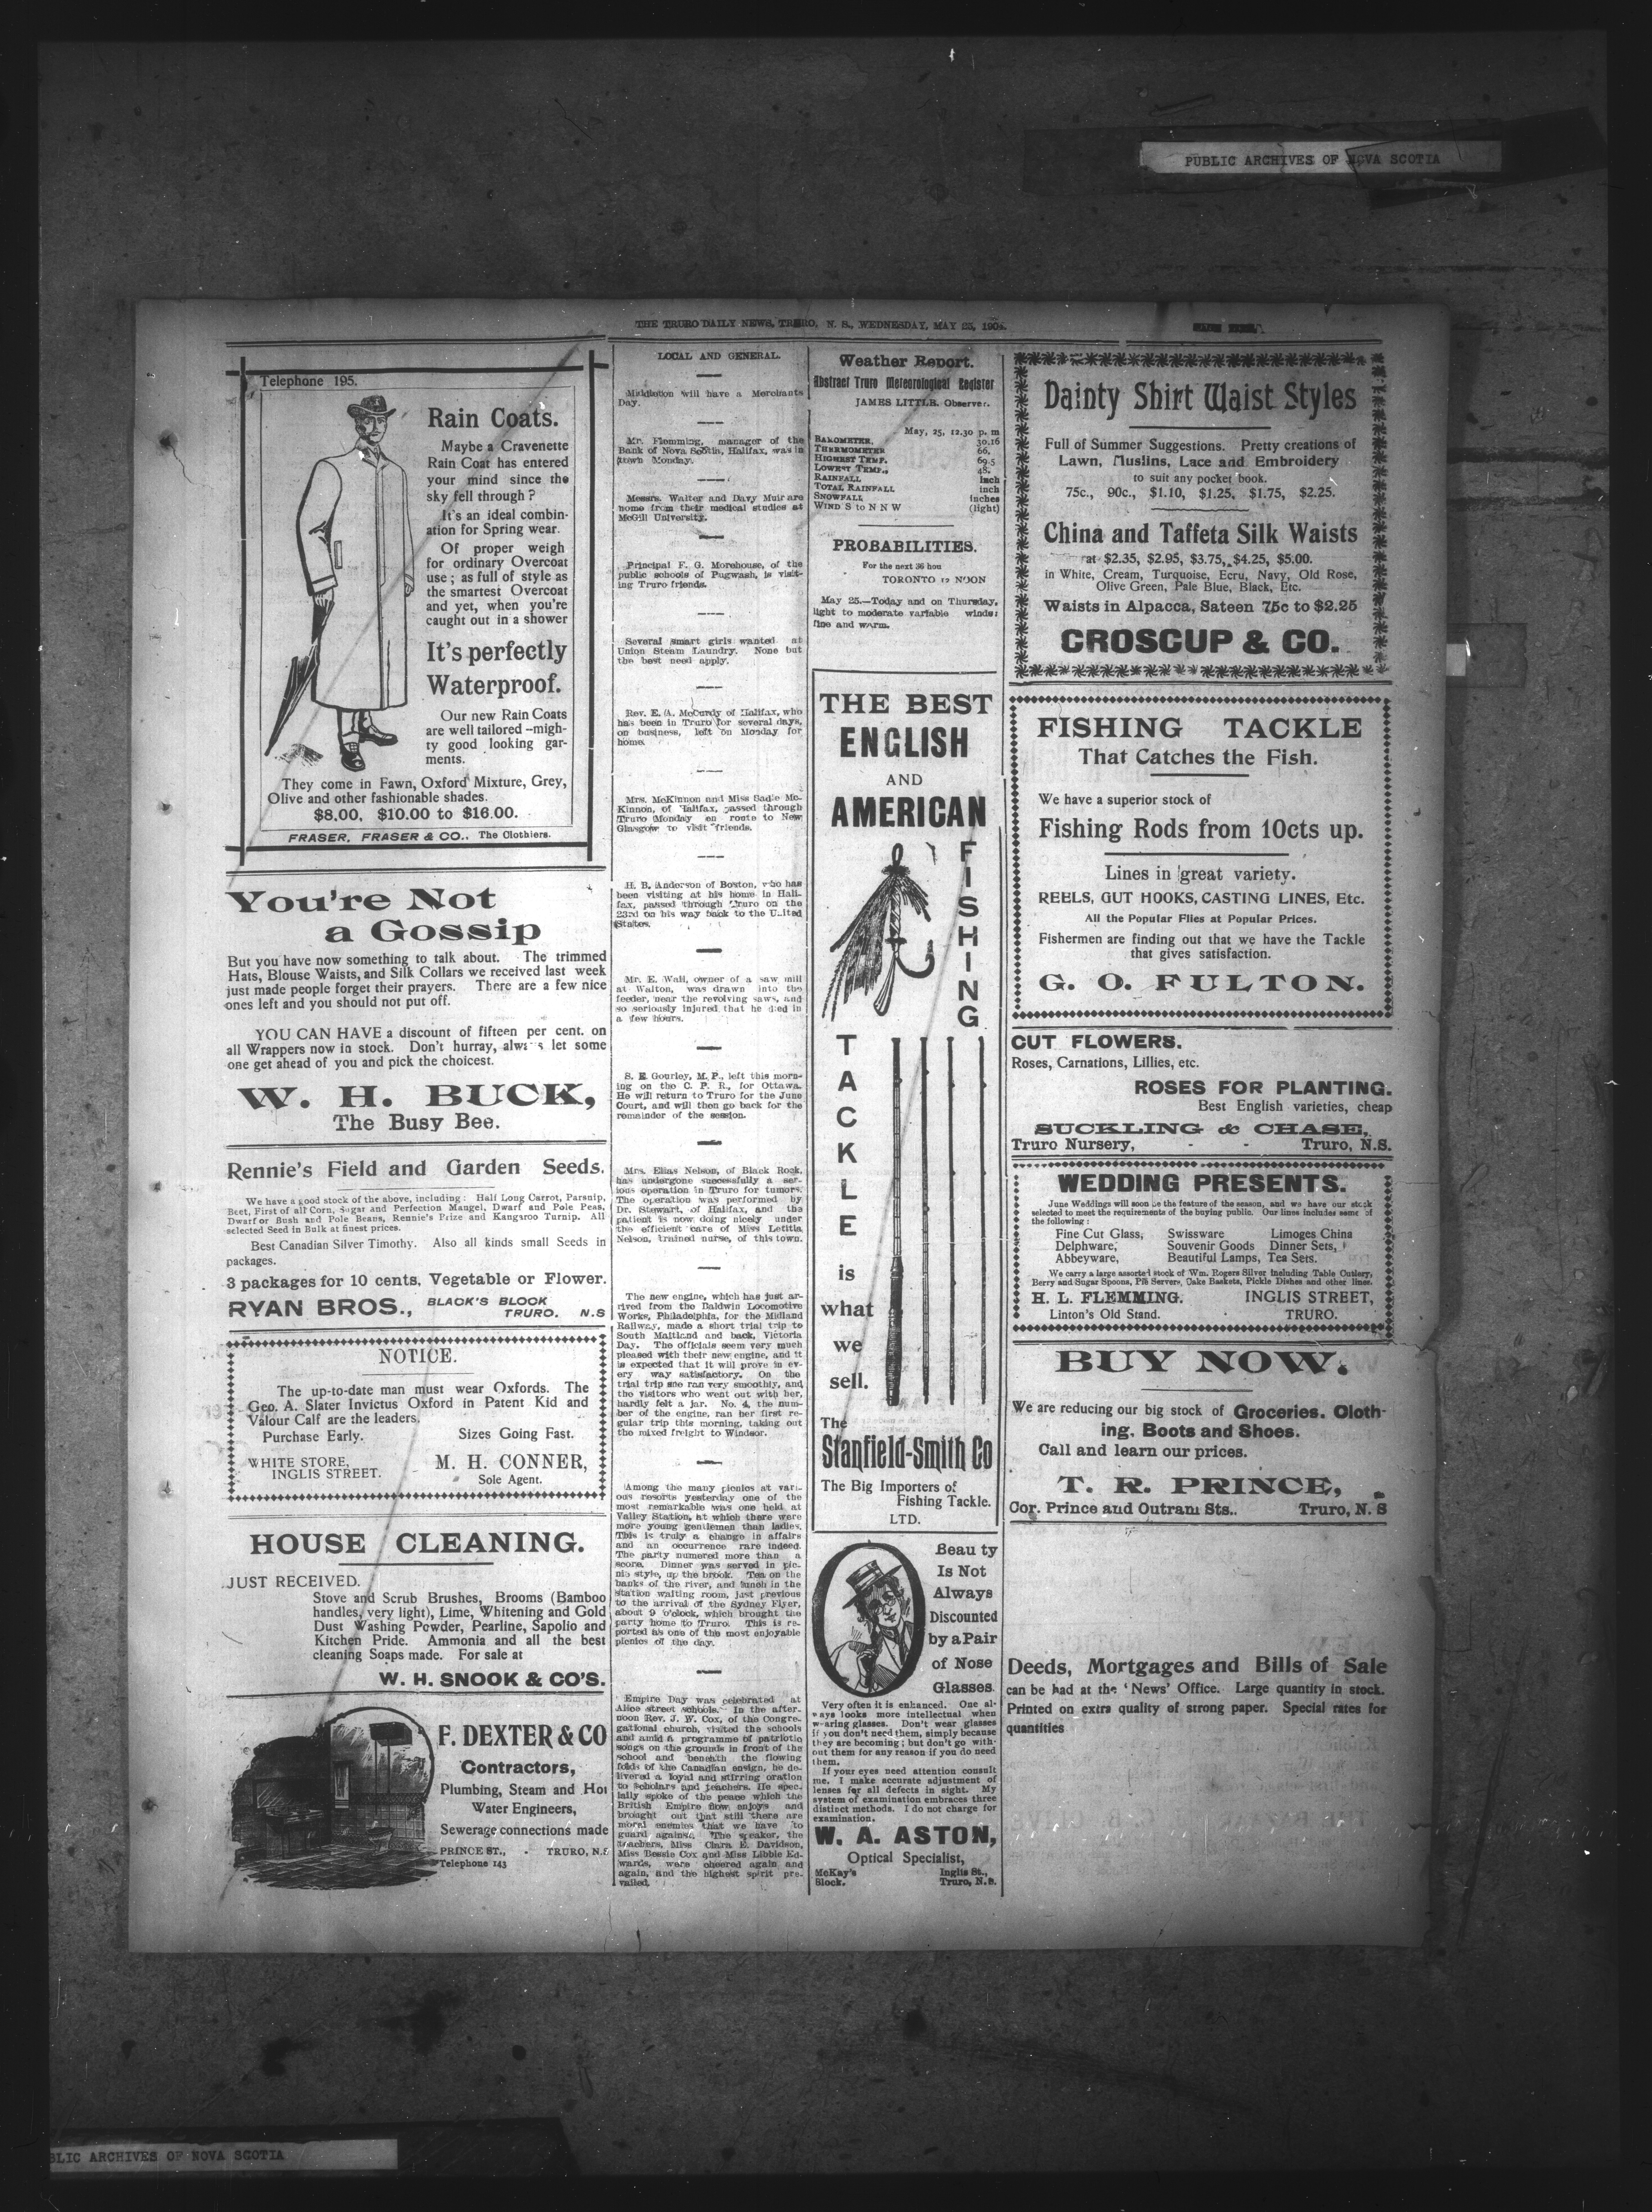 PUBLIC ARCHIVES OF NOVA SCOTIA
THE TRURO DAILY NEWS, TRURO, N. S., WEDNESDAY, MAY 25, 190
Telephone 195.
Rain Coats.
Maybe a Cravenette
Rain Coat has entered
your mind since the
sky fell through?
It's an ideal combin-
ation for Spring wear.
Of proper weigh
for ordinary Overcoat
use; as full of style as
the smartest Overcoat
and yet, when you're
caught out in a shower
It's perfectly
Waterproof.
Our new Rain Coats
are well tailored—migh-
ty good looking gar-
ments.
They come in Fawn, Oxford Mixture, Grey,
Olive and other fashionable shades.
$8.00, $10.00 to $16.00.
FRASER, FRASER & CO., The Clothiers.
You're Not
a Gossip
But you have now something to talk about. The trimmed
Hats, Blouse Waists, and Silk Collars we received last week
just made people forget their prayers. There are a few nice
ones left and you should not put off.
YOU CAN HAVE a discount of fifteen per cent. on
all Wrappers now in stock. Don't hurray, alwa s let some
one get ahead of you and pick the choicest.
W. H. BUCK,
The Busy Bee.
Rennie's Field and Garden Seeds.
We have a good stock of the above, including: Half Long Carrot, Parsnip,
Beet, First of all Corn, Sugar and Perfection Mangel, Dwarf and Pole Peas,
Dwarf or Bush and Pole Beans, Rennie's Prize and Kangaroo Turnip. All
selected Seed in Bulk at finest prices.
Best Canadian Silver Timothy. Also all kinds small Seeds in
packages.
3 packages for 10 cents, Vegetable or Flower.
RYAN BROS., BLACK'S BLOCK
TRURO. N.S
NOTICE.
The up-to-date man must wear Oxfords. The
Geo. A. Slater Invictus Oxford in Patent Kid and
Valour Calf are the leaders.
Purchase Early. Sizes Going Fast.
WHITE STORE,
INGLIS STREET.
M. H. CONNER,
Sole Agent.
HOUSE CLEANING.
JUST RECEIVED.
Stove and Scrub Brushes, Brooms (Bamboo
handles, very light), Lime, Whitening and Gold
Dust Washing Powder, Pearline, Sapolio and
Kitchen Pride. Ammonia and all the best
cleaning Soaps made. For sale at
W. H. SNOOK & CO'S.
F. DEXTER & CO
Contractors,
Plumbing, Steam and Hot
Water Engineers,
Sewerage connections made
PRINCE ST., - TRURO, N.S
Telephone 143
LOCAL AND GENERAL.
Middleton will have a Merchants
Day.
Mr. Flemming, manager of the
Bank of Nova Scotia, Halifax, was in
town Monday.
Messrs. Walter and Davy Muir are
home from their medical studies at
McGill University.
Principal F. G. Morehouse, of the
public schools of Pugwash, is visit-
ing Truro friends.
Several smart girls wanted at
Union Steam Laundry. None but
the best need apply.
Rev. E. A. McCurdy of Halifax, who
has been in Truro for several days,
on business, left on Monday for
home.
Mrs. McKinnon and Miss Sadie Mc-
Kinnon, of Halifax, passed through
Truro Monday en route to New
Glasgow to visit friends.
H. B. Anderson of Boston, who has
been visiting at his home in Hali-
fax, passed through Truro on the
23rd on his way back to the United
States.
Mr. E. Wall, owner of a saw mill
at Walton, was drawn into the
feeder, near the revolving saws, and
so seriously injured that he died in
a few hours.
S. E. Gourley, M. P., left this morn-
ing on the C. P. R., for Ottawa.
He will return to Truro for the June
Court, and will then go back for the
remainder of the session.
Mrs. Elias Nelson, of Black Rock,
has undergone successfully a ser-
ious operation in Truro for tumors.
The operation was performed by
Dr. Stewart, of Halifax, and the
patient is now doing nicely under
the efficient care of Miss Letitia
Nelson, trained nurse, of this town.
The new engine, which has just ar-
rived from the Baldwin Locomotive
Works, Philadelphia, for the Midland
Railway, made a short trial trip to
South Maitland and back, Victoria
Day. The officials seem very much
pleased with their new engine, and it
is expected that it will prove in ev-
ery way satisfactory. On the
trial trip she ran very smoothly, and
the visitors who went out with her,
hardly felt a jar. No. 4, the num-
ber of the engine, ran her first re-
gular trip this morning, taking out
the mixed freight to Windsor.
Among the many picnics at vari-
ous resorts yesterday one of the
most remarkable was one held at
Valley Station, at which there were
more young gentlemen than ladies.
This is truly a change in affairs
and an occurrence rare indeed.
The party numered more than a
score. Dinner was served in pic-
nic style, up the brook. Tea on the
banks of the river, and lunch in the
station waiting room, just previous
to the arrival of the Sydney Flyer,
about 9 o'clock, which brought the
party home to Truro. This is re-
ported as one of the most enjoyable
picnics of the day.
Empire Day was celebrated at
Alice street schools. In the after-
noon Rev. J. W. Cox, of the Congre-
gational church, visited the schools
and amid a programme of patriotic
songs on the grounds in front of the
school and beneath the flowing
folds of the Canadian ensign, he de-
livered a loyal and stirring oration
to scholars and teachers. He spec-
ially spoke of the peace which the
British Empire now enjoys and
brought out that still there are
moral enemies that we have to
guard against. The speaker, the
teachers, Miss Clara E. Davidson,
Miss Bessie Cox and Miss Libbie Ed-
wards, were cheered again and
again, and the highest spirit pre-
vailed.
Weather Report.
Abstract Truro Meteorological Register
JAMES LITTLE, Observer.
May, 25, 12.30 p. m
BAROMETER, 30.16
THERMOMETER 66.
HIGHEST TEMP. 69.5
LOWEST TEMP., 48.
RAINFALL inch
TOTAL RAINFALL inch
SNOWFALL inches
WIND S to N N W (light)
PROBABILITIES.
For the next 36 hou
TORONTO 12 NOON
May 25.—Today and on Thursday,
light to moderate variable winds;
fine and warm.
THE BEST
ENGLISH
AND
AMERICAN
FISHING
TACKLE
is
what
we
sell.
The
Stanfield-Smith Co
The Big Importers of
Fishing Tackle.
LTD.
Beauty
Is Not
Always
Discounted
by a Pair
of Nose
Glasses.
Very often it is enhanced. One al-
ways looks more intellectual when
wearing glasses. Don't wear glasses
if you don't need them, simply because
they are becoming; but don't go with-
out them for any reason if you do need
them.
If your eyes need attention consult
me. I make accurate adjustment of
lenses for all defects in sight. My
system of examination embraces three
distinct methods. I do not charge for
examination.
W. A. ASTON,
Optical Specialist,
McKay's Inglis St.,
Block. Truro, N.S.
Dainty Shirt Waist Styles
Full of Summer Suggestions. Pretty creations of
Lawn, Muslins, Lace and Embroidery
to suit any pocket book.
75c., 90c., $1.10, $1.25, $1.75, $2.25.
China and Taffeta Silk Waists
at $2.35, $2.95, $3.75, $4.25, $5.00.
in White, Cream, Turquoise, Ecru, Navy, Old Rose,
Olive Green, Pale Blue, Black, Etc.
Waists in Alpacca, Sateen 75c to $2.25
CROSCUP & CO.
FISHING TACKLE
That Catches the Fish.
We have a superior stock of
Fishing Rods from 10cts up.
Lines in great variety.
REELS, GUT HOOKS, CASTING LINES, Etc.
All the Popular Flies at Popular Prices.
Fishermen are finding out that we have the Tackle
that gives satisfaction.
G. O. FULTON.
CUT FLOWERS.
Roses, Carnations, Lillies, etc.
ROSES FOR PLANTING.
Best English varieties, cheap
SUCKLING & CHASE,
Truro Nursery, - - Truro, N.S.
WEDDING PRESENTS.
June Weddings will soon be the feature of the season, and we have our stock
selected to meet the requirements of the buying public. Our lines includes some of
the following:
Fine Cut Glass, Swissware Limoges China
Delphware, Souvenir Goods Dinner Sets,
Abbeyware, Beautiful Lamps, Tea Sets.
We carry a large assorted stock of Wm. Rogers Silver including Table Cutlery,
Berry and Sugar Spoons, Pie Servers, Cake Baskets, Pickle Dishes and other lines.
H. L. FLEMMING. INGLIS STREET,
Linton's Old Stand. TRURO.
BUY NOW.
We are reducing our big stock of Groceries, Cloth-
ing, Boots and Shoes.
Call and learn our prices.
T. R. PRINCE,
Cor. Prince and Outram Sts.. Truro, N. S
Deeds, Mortgages and Bills of Sale
can be had at the 'News' Office. Large quantity in stock.
Printed on extra quality of strong paper. Special rates for
quantities
BLIC ARCHIVES OF NOVA SCOTIA